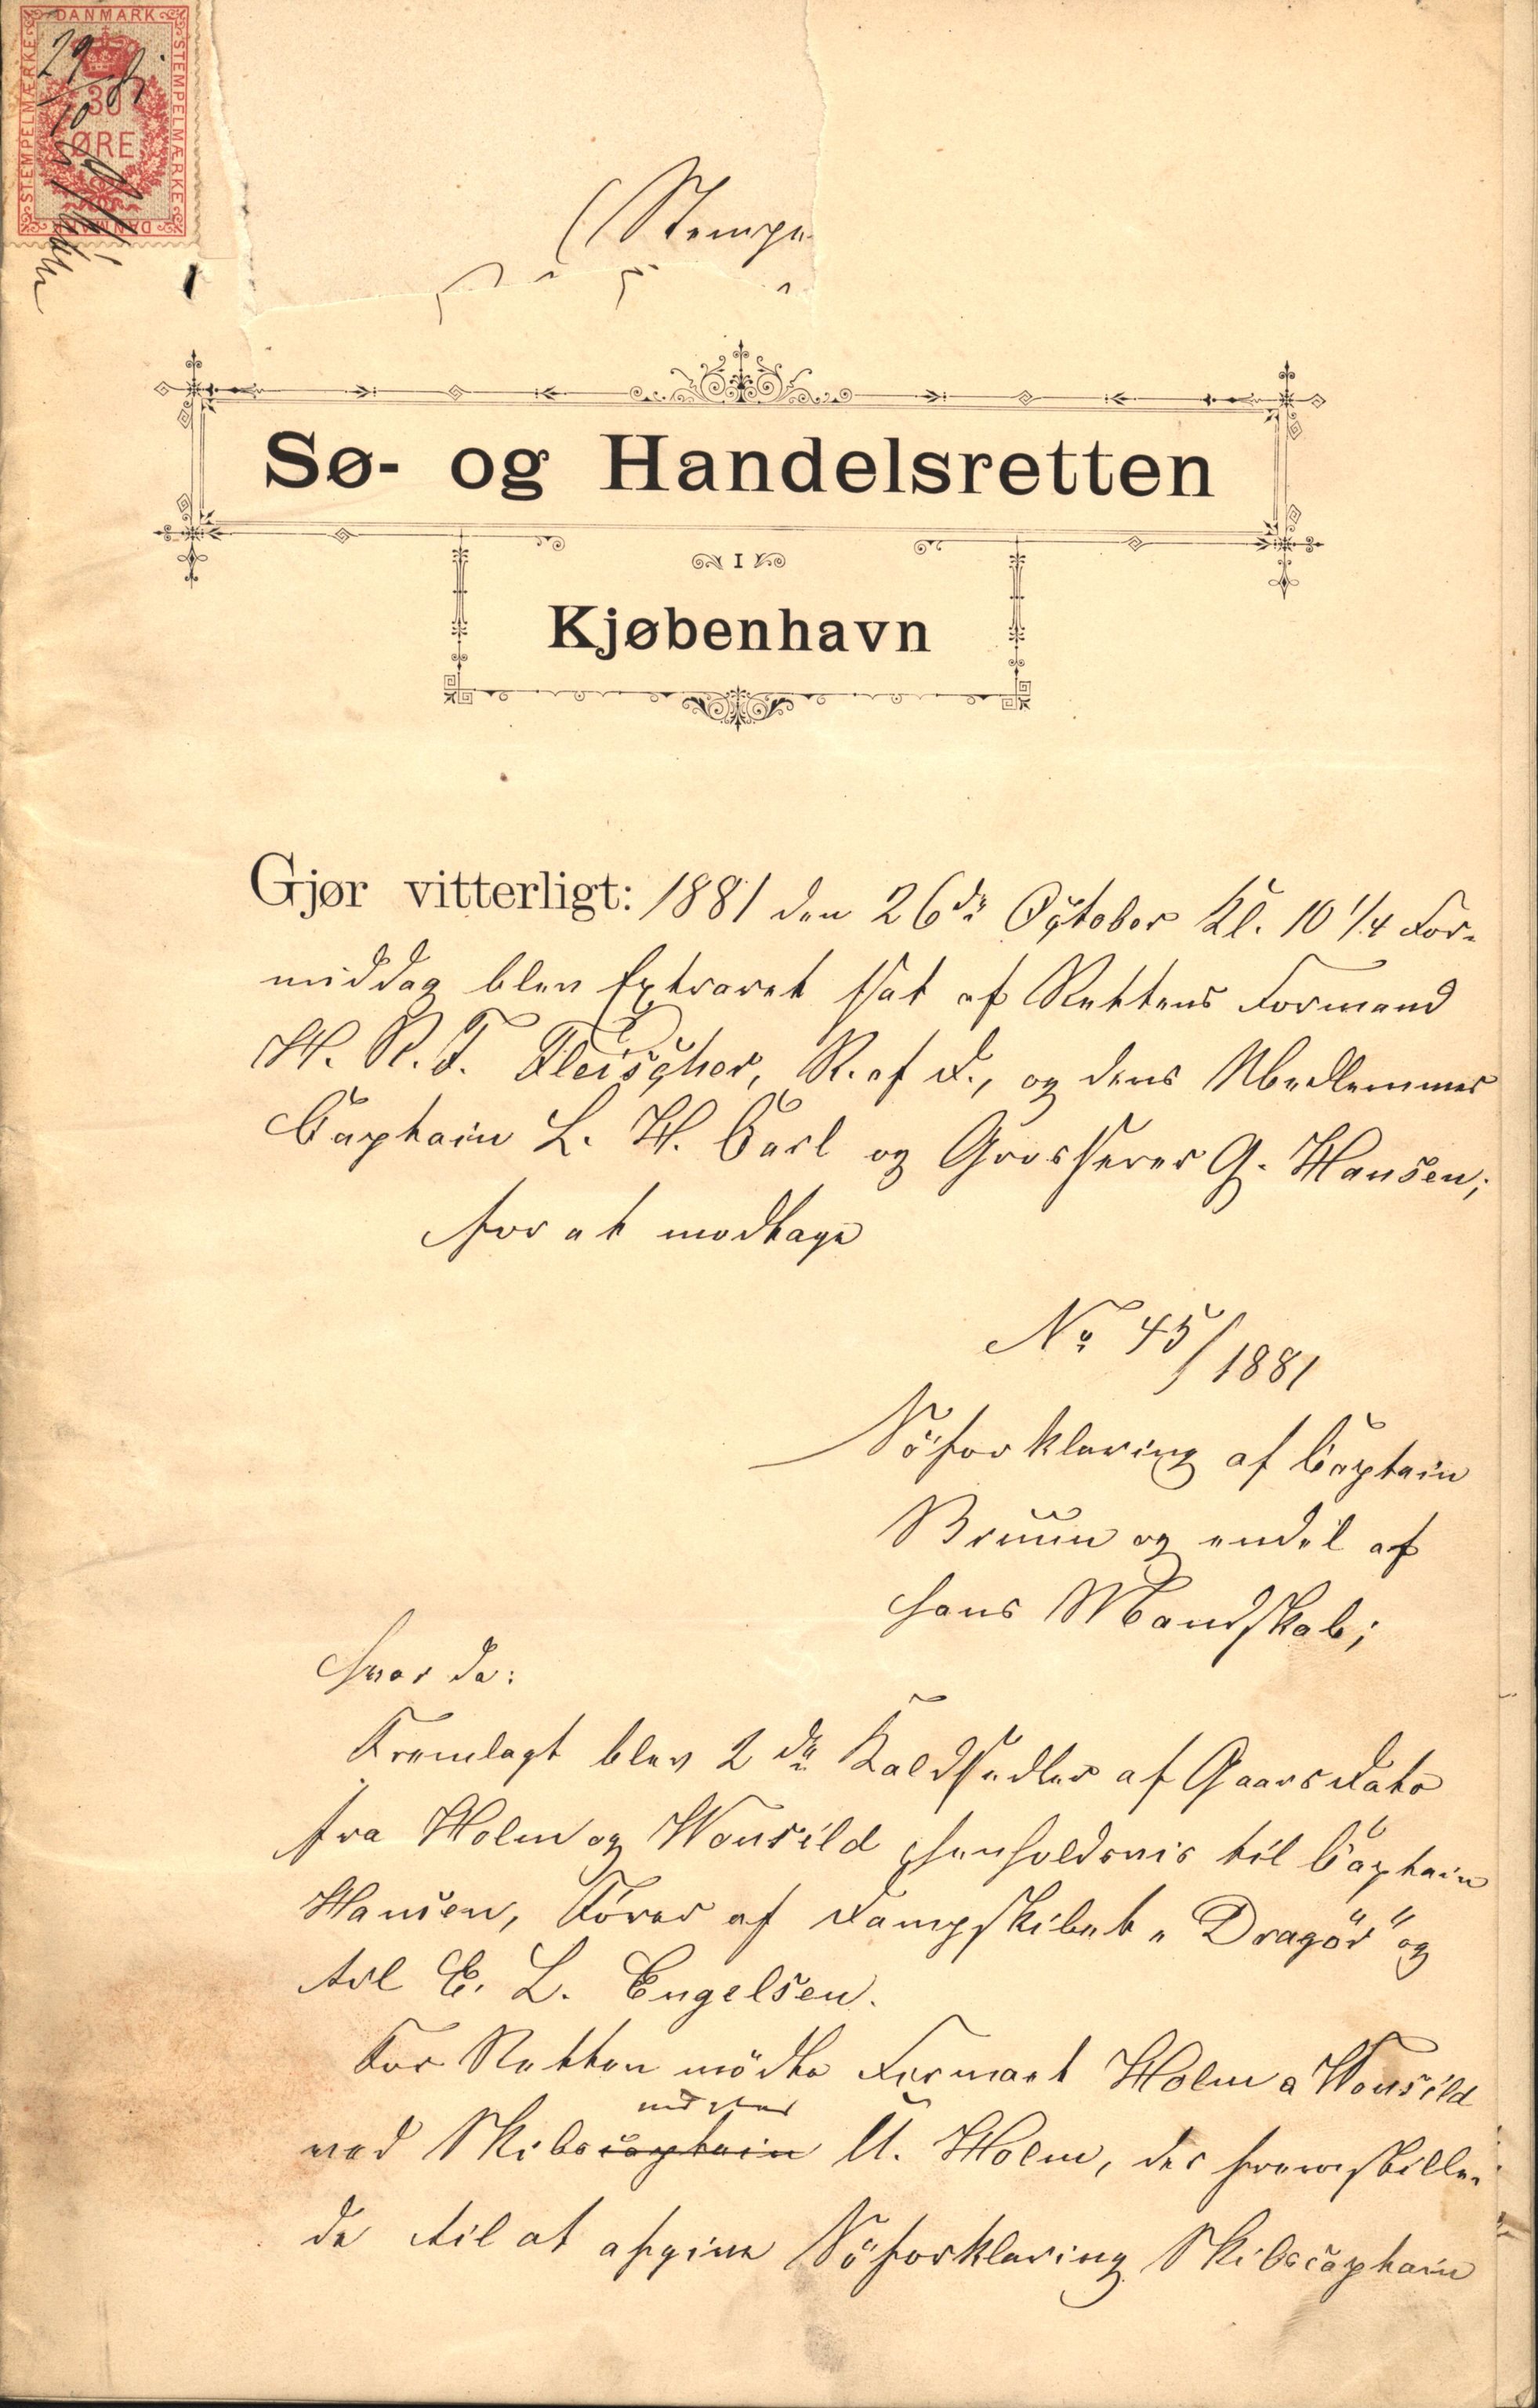 DANMARK
STEMPELMÆRKE
STEMPELMÆRKE
30
ØRE
DANMARK
29/10 81
(Stempe
Sø- og Handelsretten
I
Kjøbenhavn
Gjør vitterligt: 1881 den 26de October Kl. 10 1/4 For-
middag blev Extraret sat af Rettens Formand
H. R. F. Fleischer, R. af D., og dens Medlemmer
Captain L. H. Carl og Grosserer G. Hansen;
for at modtage
No 45/1881
Söforklaring af Captain
Bruun og endel af
hans Mandskab;
hvor da:
Fremlagt blev 2de Kaldsedler af Gaars Dato
fra Holm og Wonsild henholdsvis til Captain
Hansen, Förer af Dampskibet „Dragör“ og
til E. L. Engelsen.
For Retten mödte Firmaet Holm & Wonsild
ved Skibscaptain U. Holm, der fremstille-
de til at afgive Söforklaring Skibscaptain